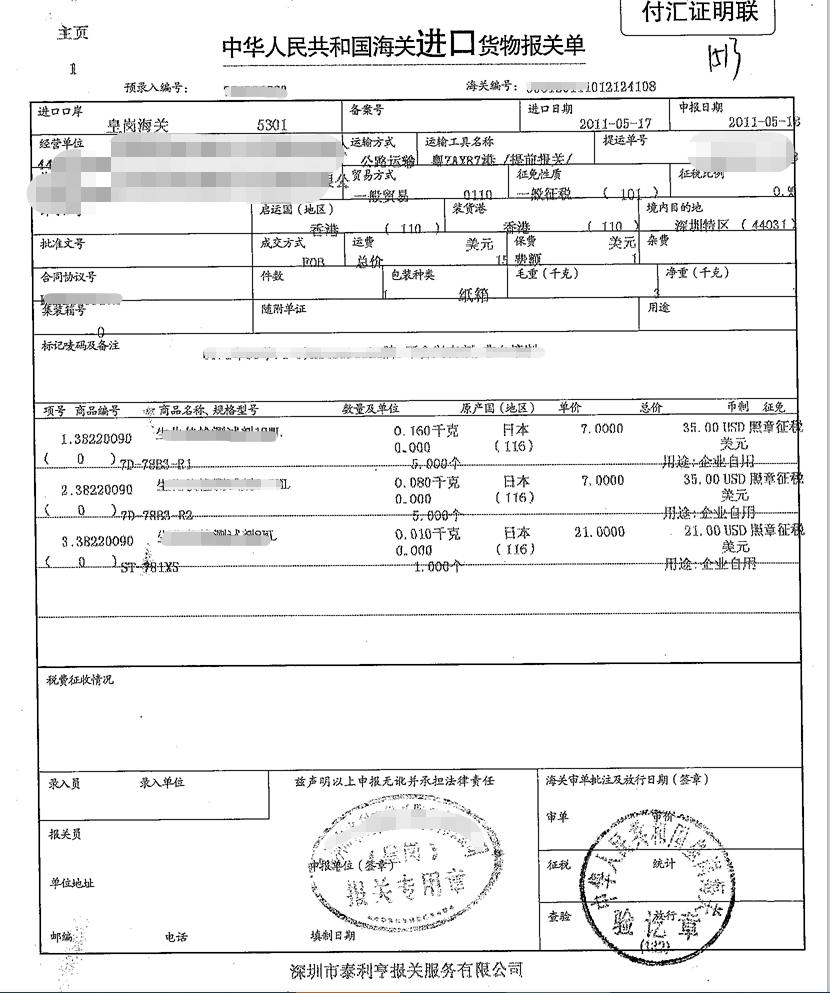 付汇证明联
主页
中华人民共和国海关进口货物报关单
1
1513
预录入编号: 海关编号: 012124108
进口口岸 备案号 进口日期 申报日期
皇岗海关 5301 2011-05-17 2011-05-18
经营单位 运输方式 运输工具名称 提运单号
公路运输 /提前报关/
贸易方式 征免性质 征税比例
一般贸易 0110 一般征税 ( 101 )
启运国(地区) 装货港 境内目的地
香港 ( 110 ) 香港 ( 110 ) 深圳特区 ( 44031 )
批准文号 成交方式 运费 美元 保费 美元 杂费
FOB 总价 15 费额 1
合同协议号 件数 包装种类 毛重(千克) 净重(千克)
1 纸箱 3
集装箱号 随附单证 用途
0
标记唛码及备注
项号 商品编号 商品名称、规格型号 数量及单位 原产国(地区) 单价 总价 币制 征免
1.38220090 0.160千克 日本 7.0000 35.00 USD 照章征税
0.000 (116) 美元
( 0 ) 7D-78B3-R1 5.000个 用途:企业自用
2.38220090 0.080千克 日本 7.0000 35.00 USD 照章征税
0.000 (116) 美元
( 0 ) 7D-78B3-R2 5.000个 用途:企业自用
3.38220090 0.010千克 日本 21.0000 21.00 USD 照章征税
0.000 (116) 美元
( 0 ) ST-781XS 1.000个 用途:企业自用
税费征收情况
录入员 录入单位 兹声明以上申报无讹并承担法律责任 海关审单批注及放行日期(签章)
审单 审价
报关员
申报单位(签章)
(皇岗)
报关专用章
征税 统计
单位地址
中华人民共和国皇岗海关
查验 放行
验讫章
(133)
邮编 电话 填制日期
深圳市泰利亨报关服务有限公司